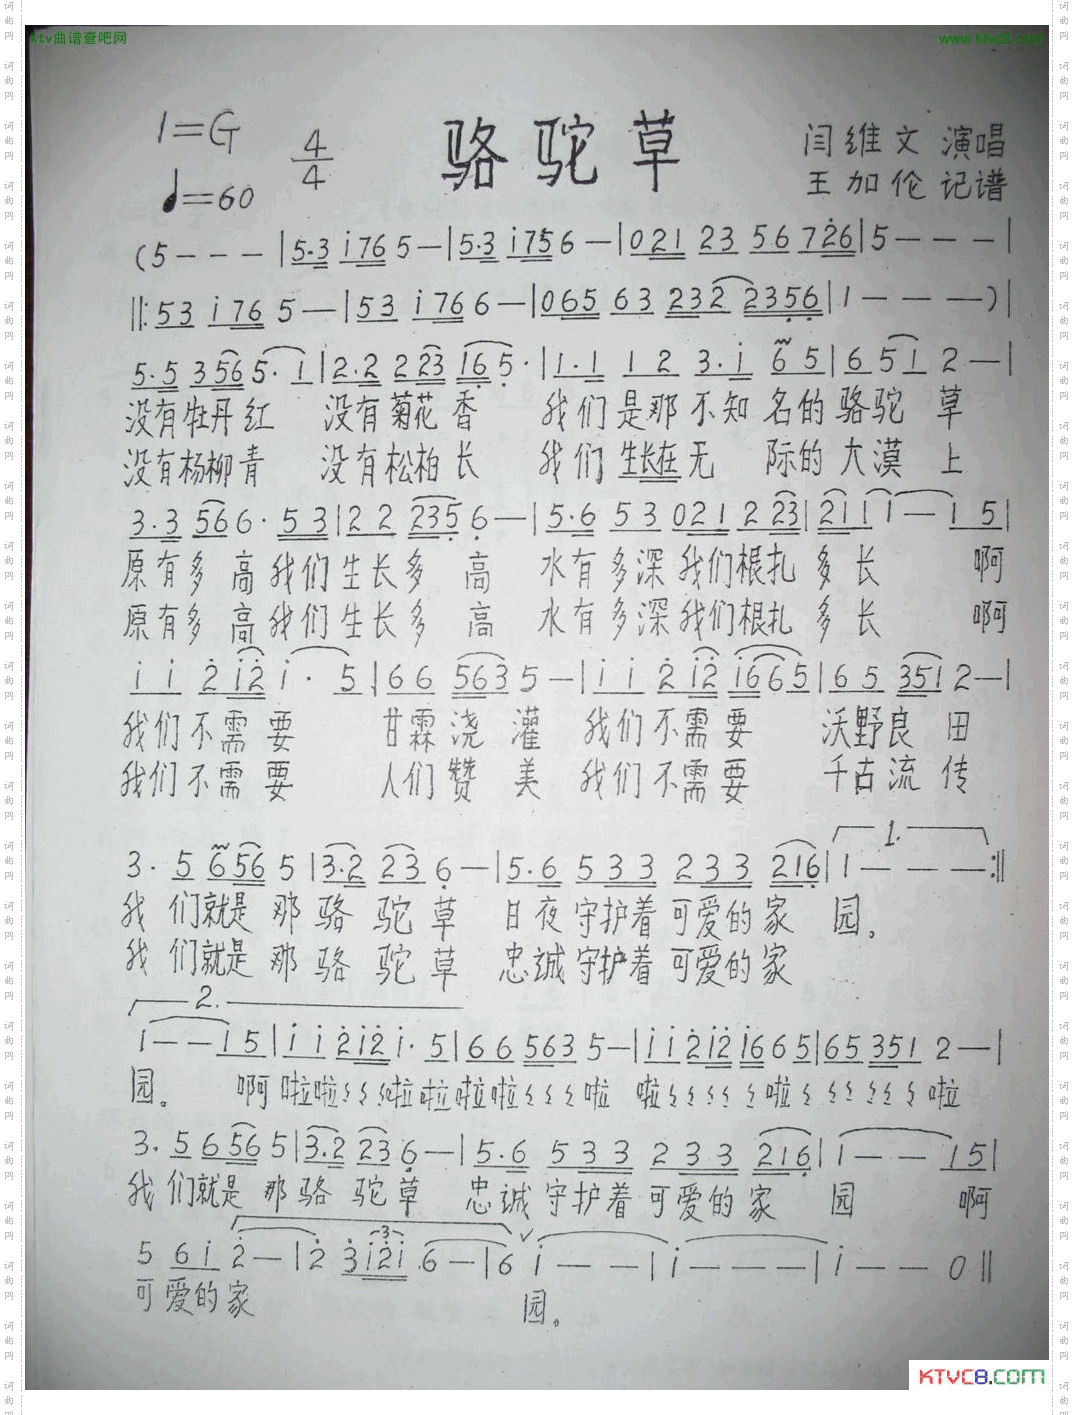 ktv曲谱查吧网
www.ktvc8.com
1=G 4/4 骆驼草 闫维文 演唱
♩=60 王加伦 记谱
(5 - - - | 5·3 i76 5 - | 5·3 i756 - | 021 23 56 726 | 5 - - - |
‖: 53 i76 5 - | 53 i76 6 - | 065 63 232 2356 | 1 - - - ) |
5·5 356 5· i | 2·2 223 165· | 1·1 12 3·i 65 | 651 2 - |
没有牡丹红 没有菊花香 我们是那不知名的骆驼草
没有杨柳青 没有松柏长 我们生长在无际的大漠上
3·3 566· 53 | 22 2356 - | 5·6 53 021 223 | 2111 - 15 |
原有多高我们生长多高 水有多深我们根扎多长 啊
原有多高我们生长多高 水有多深我们根扎多长 啊
ii 2i2 i· 5 | 66 5635 - | ii 2i2 i665 | 65 3512 - |
我们不需要 甘霖浇灌 我们不需要 沃野良田
我们不需要 人们赞美 我们不需要 千古流传
1.
3· 5 656 5 | 3·2 23 6 - | 5·6 533 233 216 | 1 - - - :‖
我们就是那骆驼草 日夜守护着可爱的家园。
我们就是那骆驼草 忠诚守护着可爱的家
2.
1 - - 15 | ii 2i2 i· 5 | 66 563 5 - | ii2i2 i665 | 65 351 2 - |
园。 啊啦啦ミミミ啦啦啦啦ミミミ啦 啦ミミミミミ啦ミミミミミ啦
3· 5 656 5 | 3·2 23 6 - | 5·6 533 233 216 | 1 - - 15 |
我们就是那骆驼草 忠诚守护着可爱的家园 啊
5 6i 2 - | 2 3i2i 6 - | 6 i - - | i - - - | i - - 0 ‖
3
可爱的家 园。
KTVC8.com